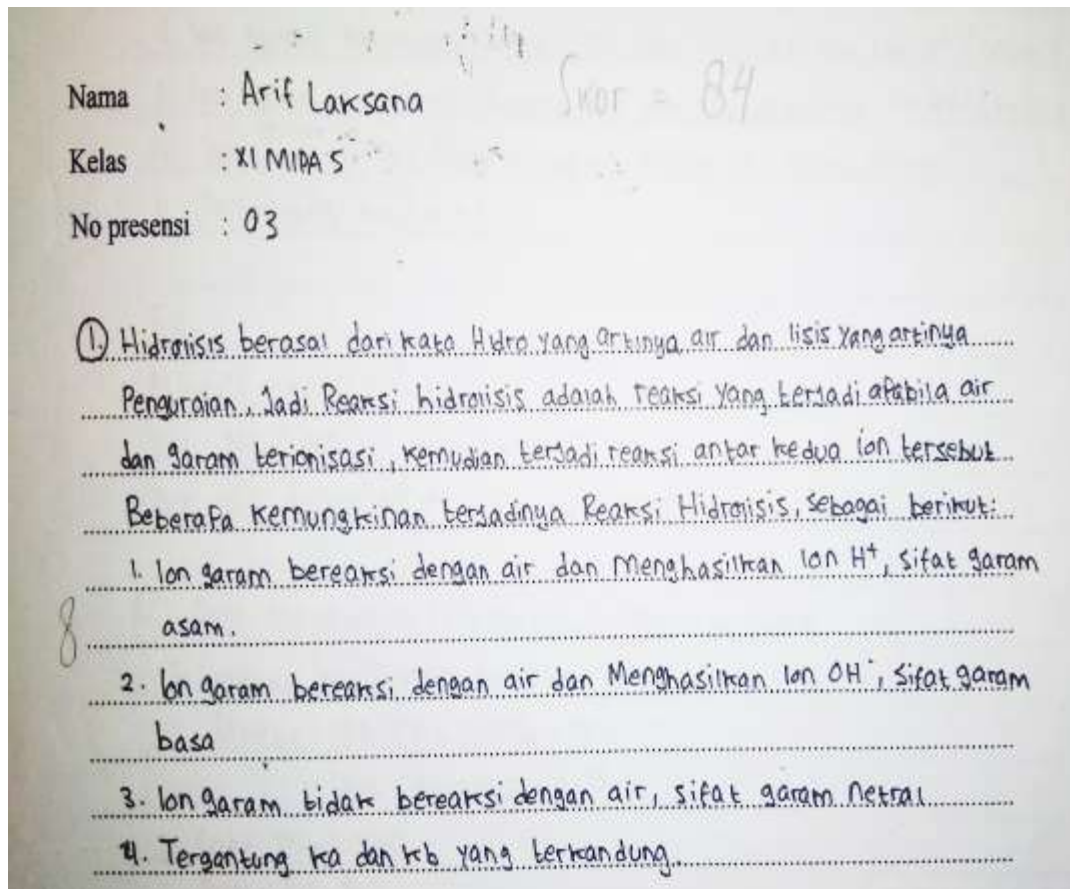 Nama : Arif Laksana
Skor = 84
Kelas : XI MIPA 5
No presensi : 03
1. Hidrolisis berasal dari kata Hidro yang artinya air dan lisis yang artinya
Penguraian, Jadi Reaksi hidrolisis adalah reaksi yang terjadi apabila air
dan garam terionisasi, kemudian terjadi reaksi antar kedua ion tersebut
Beberapa kemungkinan terjadinya Reaksi Hidrolisis, sebagai berikut:
1. Ion garam bereaksi dengan air dan Menghasilkan Ion H⁺, sifat garam
asam.
8
2. Ion garam bereaksi dengan air dan Menghasilkan Ion OH⁻, Sifat garam
basa
3. Ion garam tidak bereaksi dengan air, sifat garam Netral
4. Tergantung ka dan kb yang terkandung.